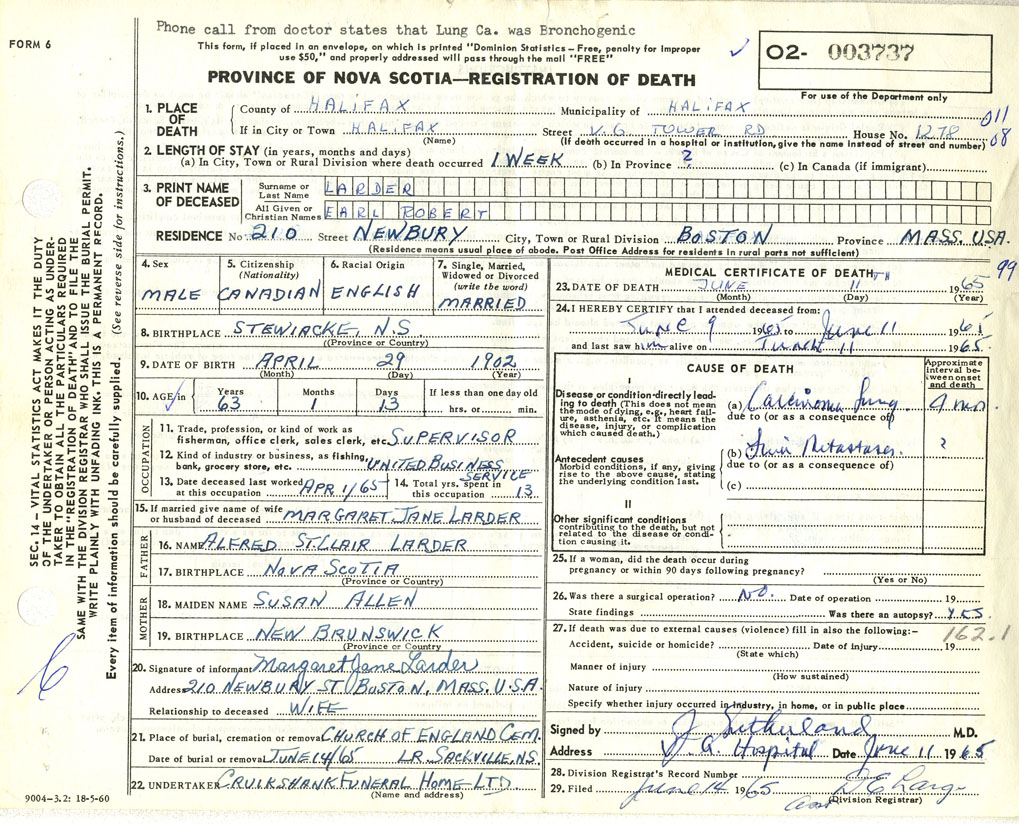 Phone call from doctor states that Lung Ca. was Bronchogenic
FORM 6
This form, if placed in an envelope, on which is printed "Dominion Statistics – Free, penalty for improper
use $50," and properly addressed will pass through the mail "FREE"
O2- 003737
For use of the Department only
PROVINCE OF NOVA SCOTIA—REGISTRATION OF DEATH
1. PLACE OF DEATH
County of HALIFAX Municipality of HALIFAX 011
If in City or Town HALIFAX Street V.G. TOWER RD House No. 1278 08
(Name) (If death occurred in a hospital or institution, give the name instead of street and number)
2. LENGTH OF STAY (in years, months and days)
(a) In City, Town or Rural Division where death occurred 1 WEEK (b) In Province ? (c) In Canada (if immigrant)
3. PRINT NAME OF DECEASED
Surname or Last Name LARDER
All Given or Christian Names EARL ROBERT
RESIDENCE No. 210 Street NEWBURY City, Town or Rural Division BOSTON Province MASS. USA.
(Residence means usual place of abode. Post Office Address for residents in rural parts not sufficient)
99
4. Sex MALE
5. Citizenship (Nationality) CANADIAN
6. Racial Origin ENGLISH
7. Single, Married, Widowed or Divorced (write the word) MARRIED
8. BIRTHPLACE STEWIACKE, N.S.
(Province or Country)
9. DATE OF BIRTH APRIL 29 1902
(Month) (Day) (Year)
10. AGE in Years 63 Months 1 Days 13 If less than one day old hrs. or min.
OCCUPATION
11. Trade, profession, or kind of work as
fisherman, office clerk, sales clerk, etc. SUPERVISOR
12. Kind of industry or business, as fishing,
bank, grocery store, etc. UNITED BUSINESS SERVICE
13. Date deceased last worked at this occupation APR 1/65
14. Total yrs. spent in this occupation 13
15. If married give name of wife
or husband of deceased MARGARET JANE LARDER
FATHER
16. NAME ALFRED ST. CLAIR LARDER
17. BIRTHPLACE NOVA SCOTIA
(Province or Country)
MOTHER
18. MAIDEN NAME SUSAN ALLEN
19. BIRTHPLACE NEW BRUNSWICK
(Province or Country)
20. Signature of informant Margaret Jane Larder
Address 210 NEWBURY ST BOSTON, MASS. U.S.A.
Relationship to deceased WIFE
21. Place of burial, cremation or removal CHURCH OF ENGLAND CEM.
Date of burial or removal JUNE 14/65 LR. SACKVILLE, N.S.
22. UNDERTAKER CRUIKSHANK FUNERAL HOME LTD
(Name and address)
MEDICAL CERTIFICATE OF DEATH
23. DATE OF DEATH JUNE 11TH 1965
(Month) (Day) (Year)
24. I HEREBY CERTIFY that I attended deceased from:
June 9 1965 to June 11 1965
and last saw him alive on June 11 1965.
CAUSE OF DEATH
Approximate interval between onset and death
I
Disease or condition directly leading to death (This does not mean the mode of dying, e.g., heart failure, asthenia, etc. It means the disease, injury, or complication which caused death.)
(a) Carcinoma Lung 9 mos.
due to (or as a consequence of)
Antecedent causes
Morbid conditions, if any, giving rise to the above cause, stating the underlying condition last.
(b) Liver Metastases ?
due to (or as a consequence of)
(c)
II
Other significant conditions
contributing to the death, but not related to the disease or condition causing it.
25. If a woman, did the death occur during
pregnancy or within 90 days following pregnancy?
(Yes or No)
26. Was there a surgical operation? NO. Date of operation 19
State findings Was there an autopsy? YES
27. If death was due to external causes (violence) fill in also the following:– 162.1
Accident, suicide or homicide? Date of injury 19
(State which)
Manner of injury
(How sustained)
Nature of injury
Specify whether injury occurred in industry, in home, or in public place
Signed by J Sutherland M.D.
Address V.G. Hospital Date June 11 1965
28. Division Registrar's Record Number
29. Filed June 14 1965
(Division Registrar)
SEC. 14 – VITAL STATISTICS ACT MAKES IT THE DUTY
OF THE UNDERTAKER OR PERSON ACTING AS UNDER-
TAKER TO OBTAIN ALL THE PARTICULARS REQUIRED
IN THE "REGISTRATION OF DEATH" AND TO FILE THE
SAME WITH THE DIVISION REGISTRAR WHO SHALL ISSUE THE BURIAL PERMIT.
WRITE PLAINLY WITH UNFADING INK. THIS IS A PERMANENT RECORD.
Every item of information should be carefully supplied. (See reverse side for instructions.)
9004-3.2: 18-5-60